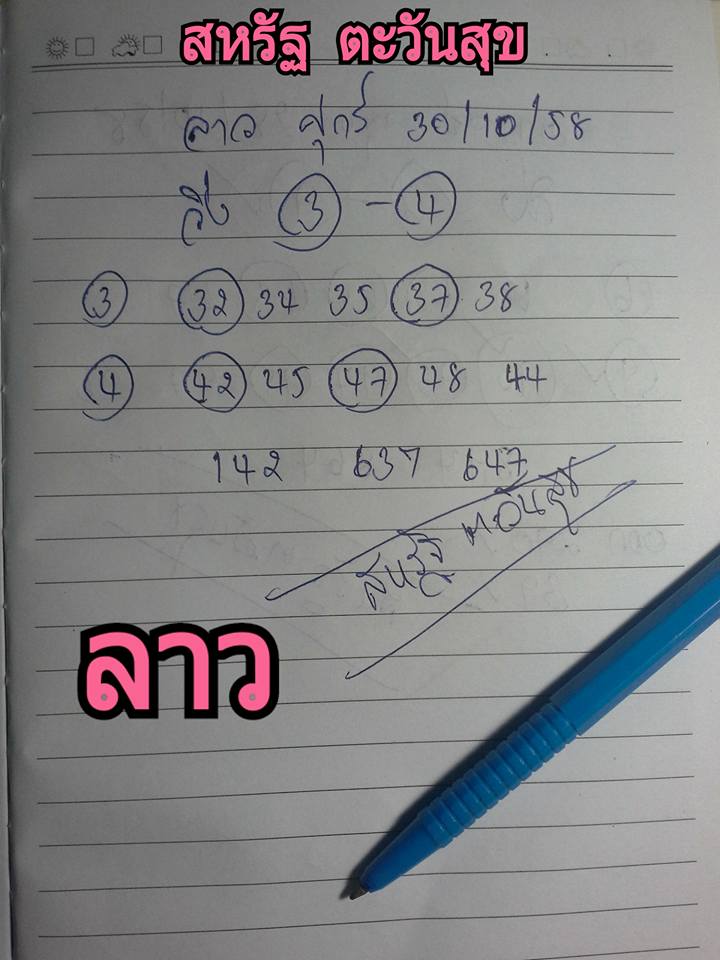 สหรัฐ ตะวันสุข
ลาว ศุกร์ 30/10/58
วิ่ง 3 - 4
3 32 34 35 37 38
4 42 45 47 48 44
142 637 647
สหรัฐ ตะวันสุข
ลาว